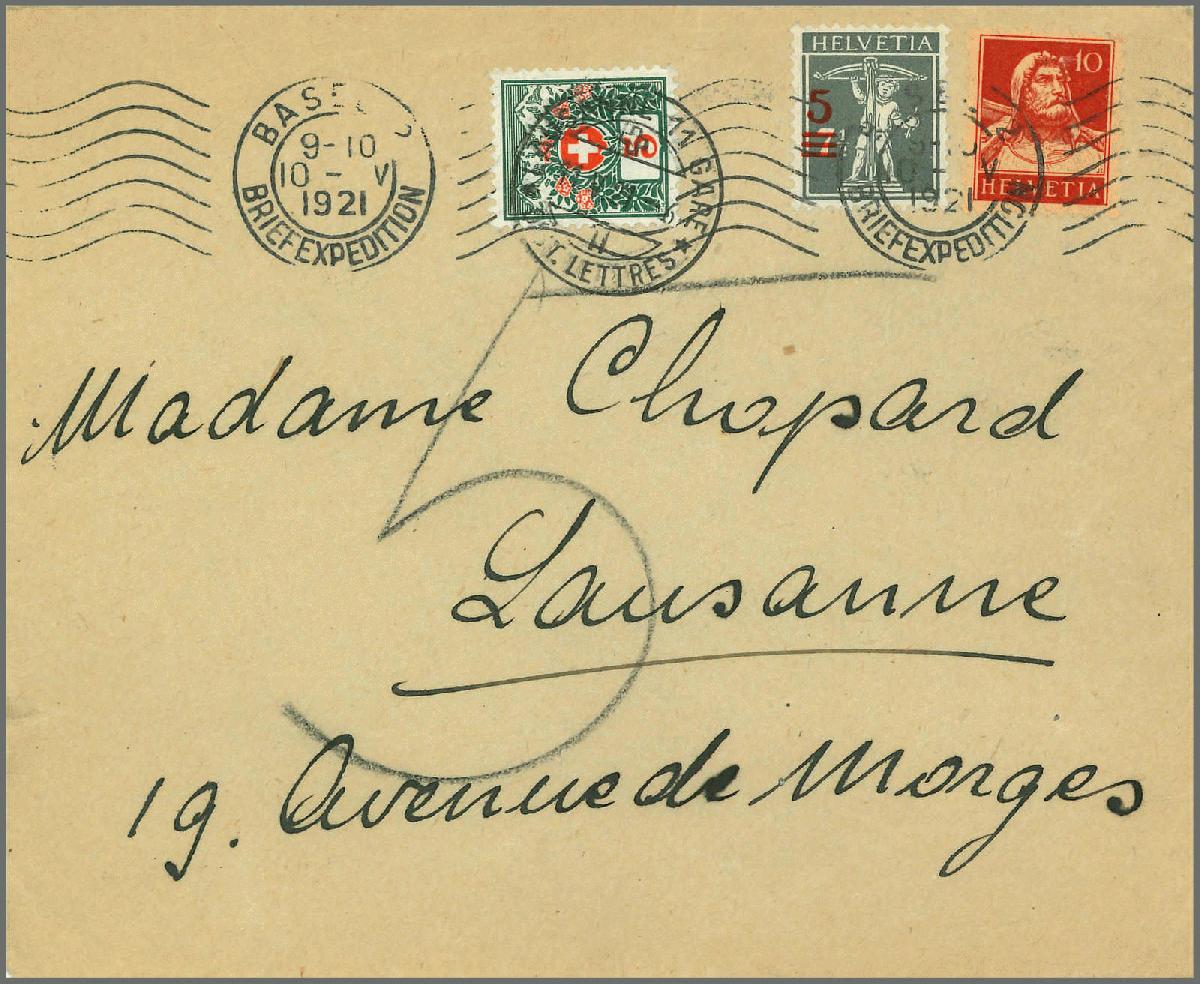 BASEL 2
9-10
10-V
1921
BRIEFEXPEDITION
50
GARE
LETTRES
HELVETIA
5
10
HELVETIA
1921
BRIEFEXPEDITION
5
Madame Chopard
Lausanne
19. Avenue de Morges